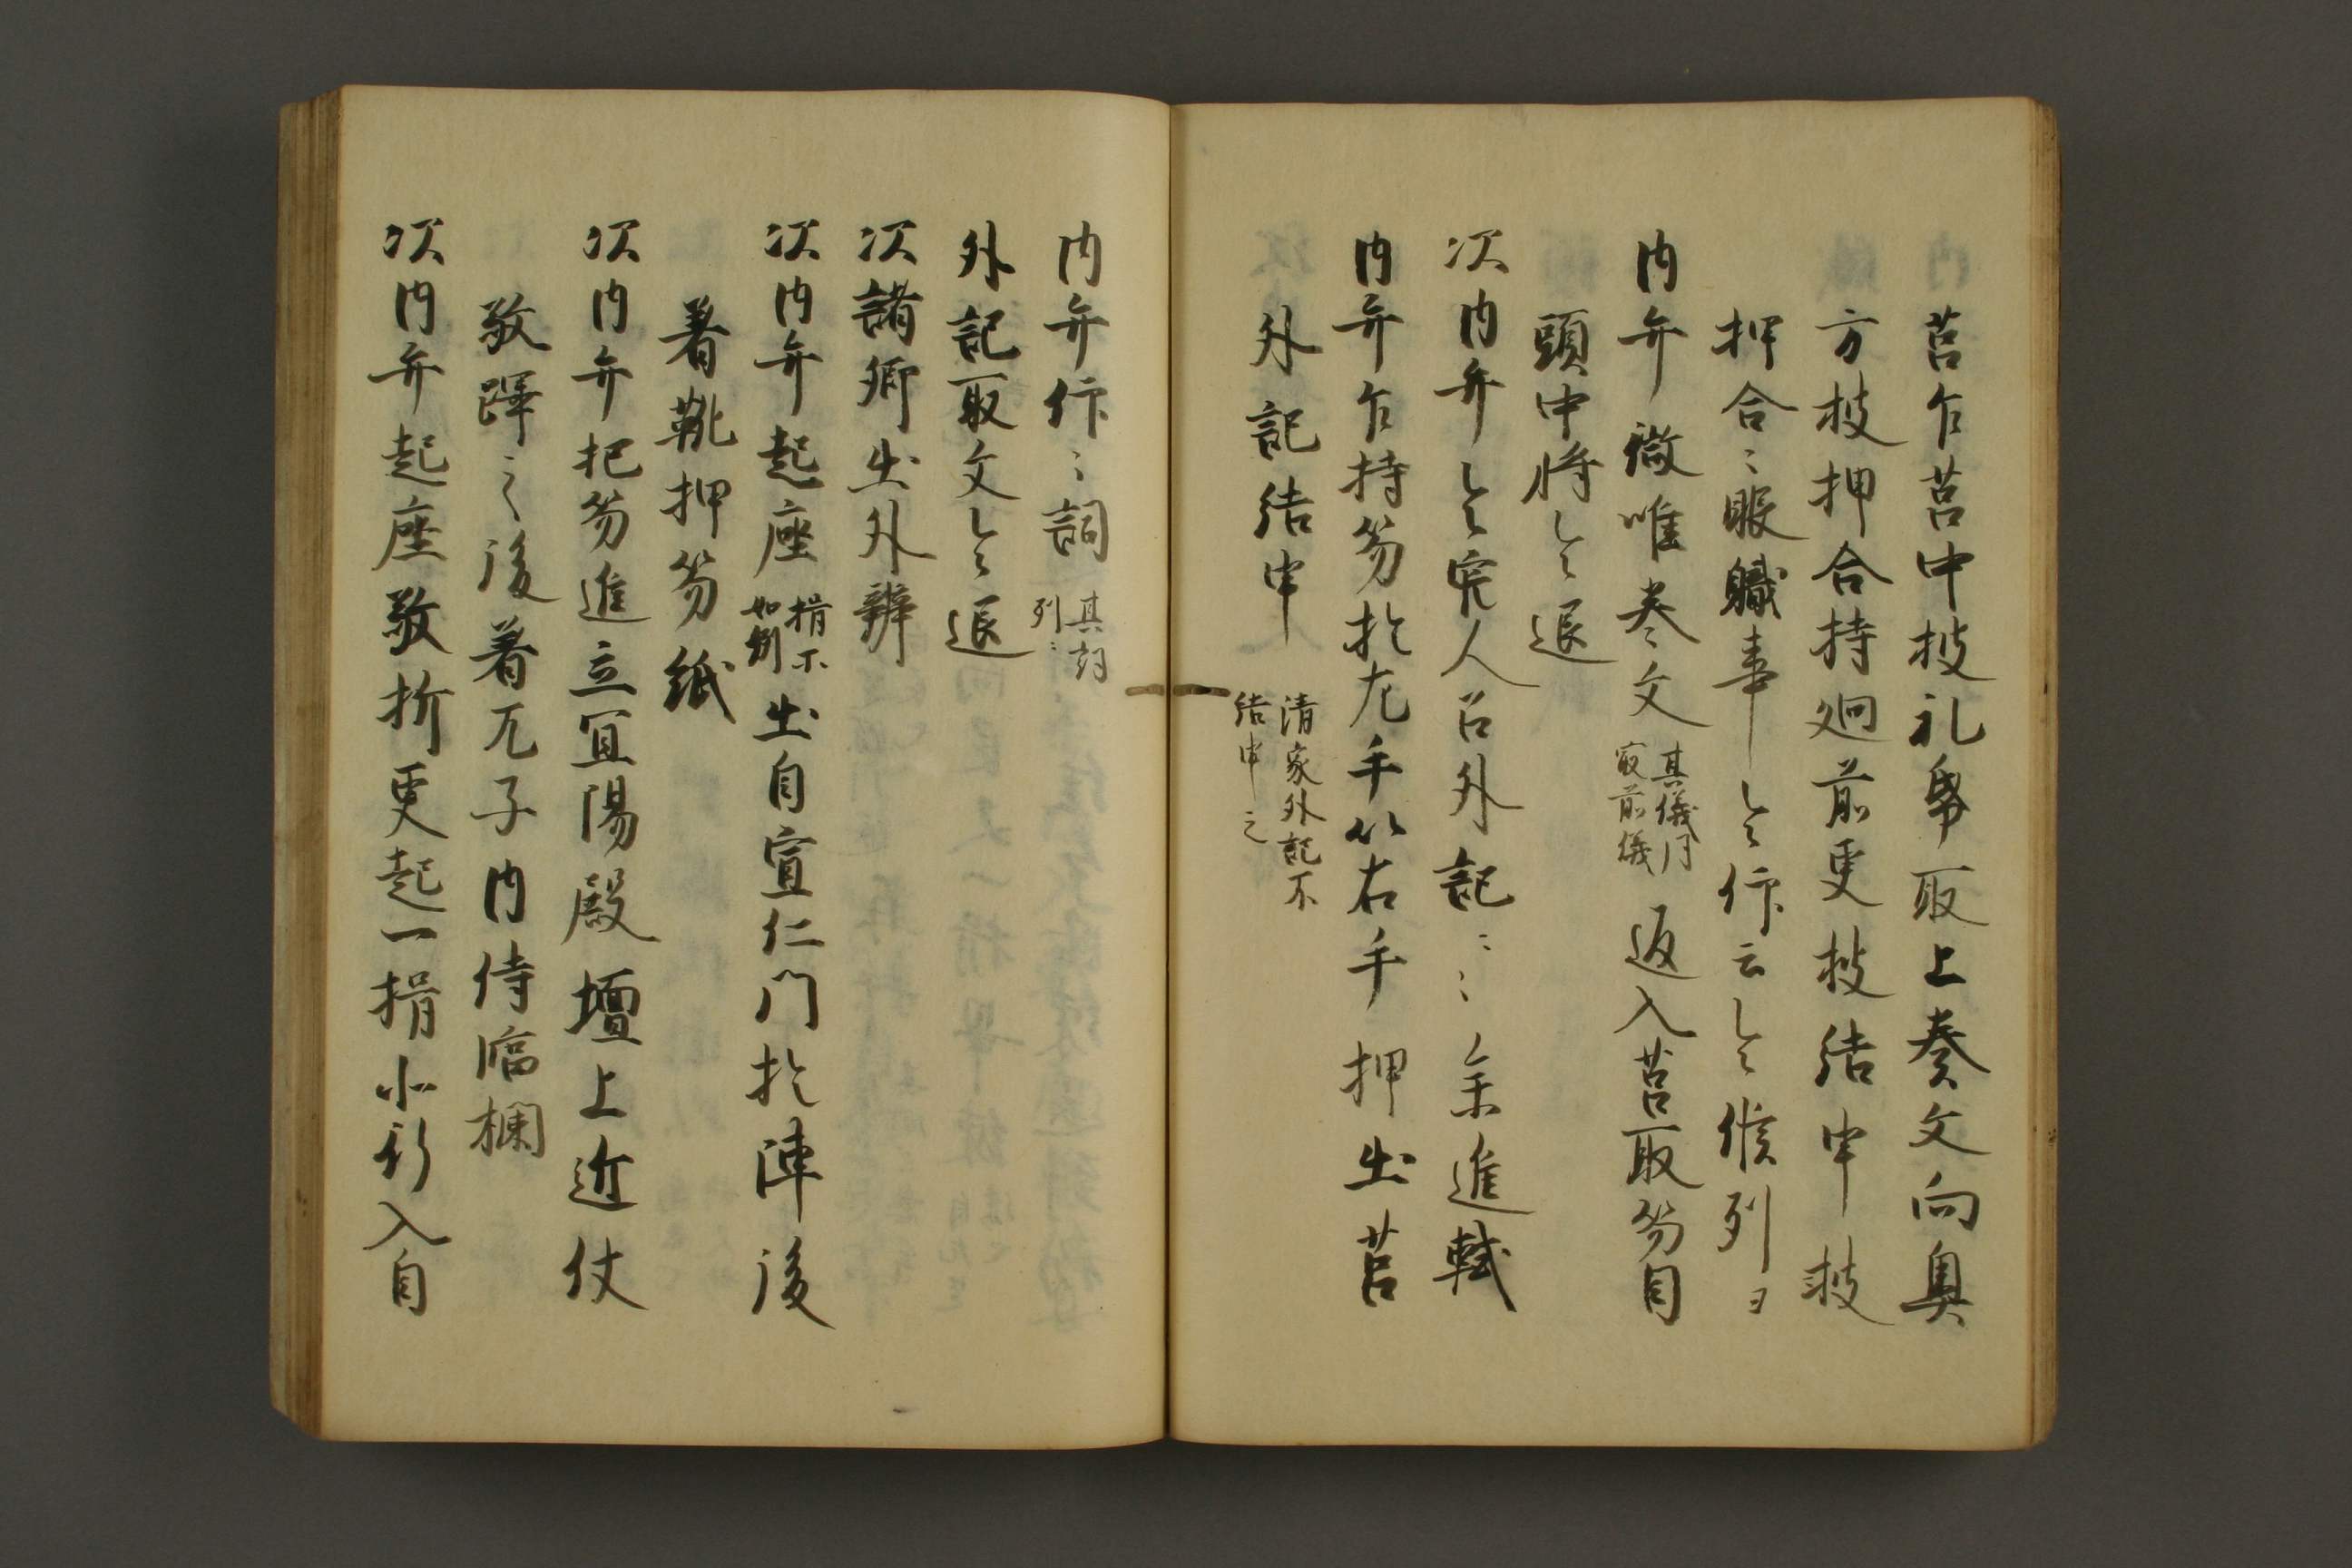 莒乍莒中披礼帋取上奏文向奥
方披押合持廻前更披結申披
押合〻眼軄事〻仰云〻候列ヨ
内弁微唯巻文其儀同
㝡前儀返入莒取笏目
頭中将〻退
次内弁〻官人召外記〻〻参進軾
内弁乍持笏於左手以右手押出莒
外記結申清家外記不
結申之
内弁仰〻詞其詞
列〻
外記取文〻退
次諸卿出外辨
次内弁起座揖不
如例出自宣仁门於陣後
着靴押笏紙
次内弁把笏進立宜陽殿壇上近仗
敬蹕之後着兀子内侍臨欄
次内弁起座敬折更起一揖小行入自